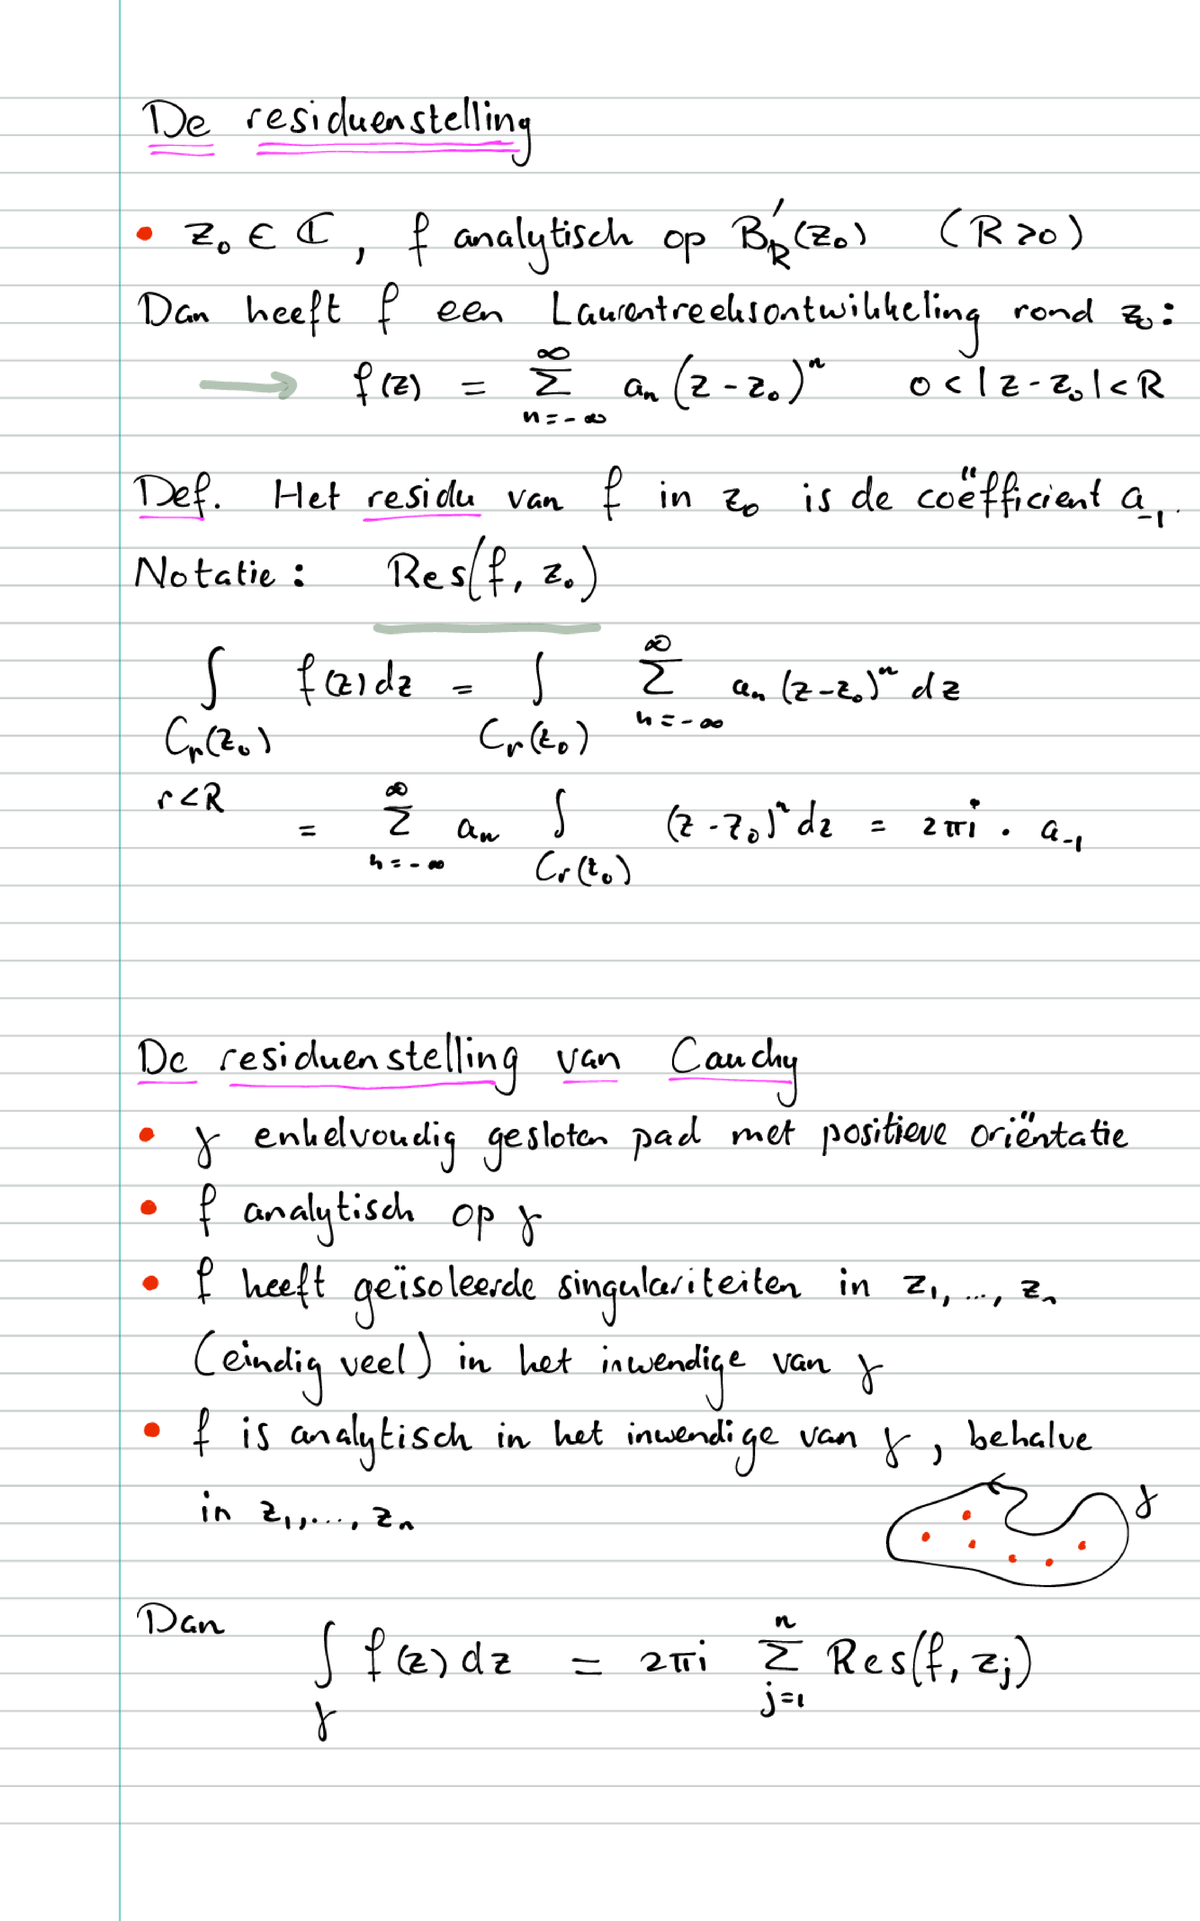 De residuenstelling
• z₀ ∈ ℂ, f analytisch op B'_R(z₀) (R>0)
Dan heeft f een Laurentreeksontwikkeling rond z₀:
→ f(z) = ∑_{n=-∞}^{∞} aₙ (z-z₀)ⁿ 0<|z-z₀|<R
Def. Het residu van f in z₀ is de coëfficient a₋₁.
Notatie: Res(f, z₀)
∫_{C_r(z₀)} f(z)dz = ∫_{C_r(z₀)} ∑_{n=-∞}^{∞} aₙ (z-z₀)ⁿ dz
r<R = ∑_{n=-∞}^{∞} aₙ ∫_{C_r(z₀)} (z-z₀)ⁿ dz = 2πi · a₋₁
De residuenstelling van Cauchy
• γ enkelvoudig gesloten pad met positieve oriëntatie
• f analytisch op γ
• f heeft geïsoleerde singulariteiten in z₁, ..., zₙ
(eindig veel) in het inwendige van γ
• f is analytisch in het inwendige van γ, behalve
in z₁,..., zₙ
γ
Dan ∫_γ f(z)dz = 2πi ∑_{j=1}^{n} Res(f, z_j)